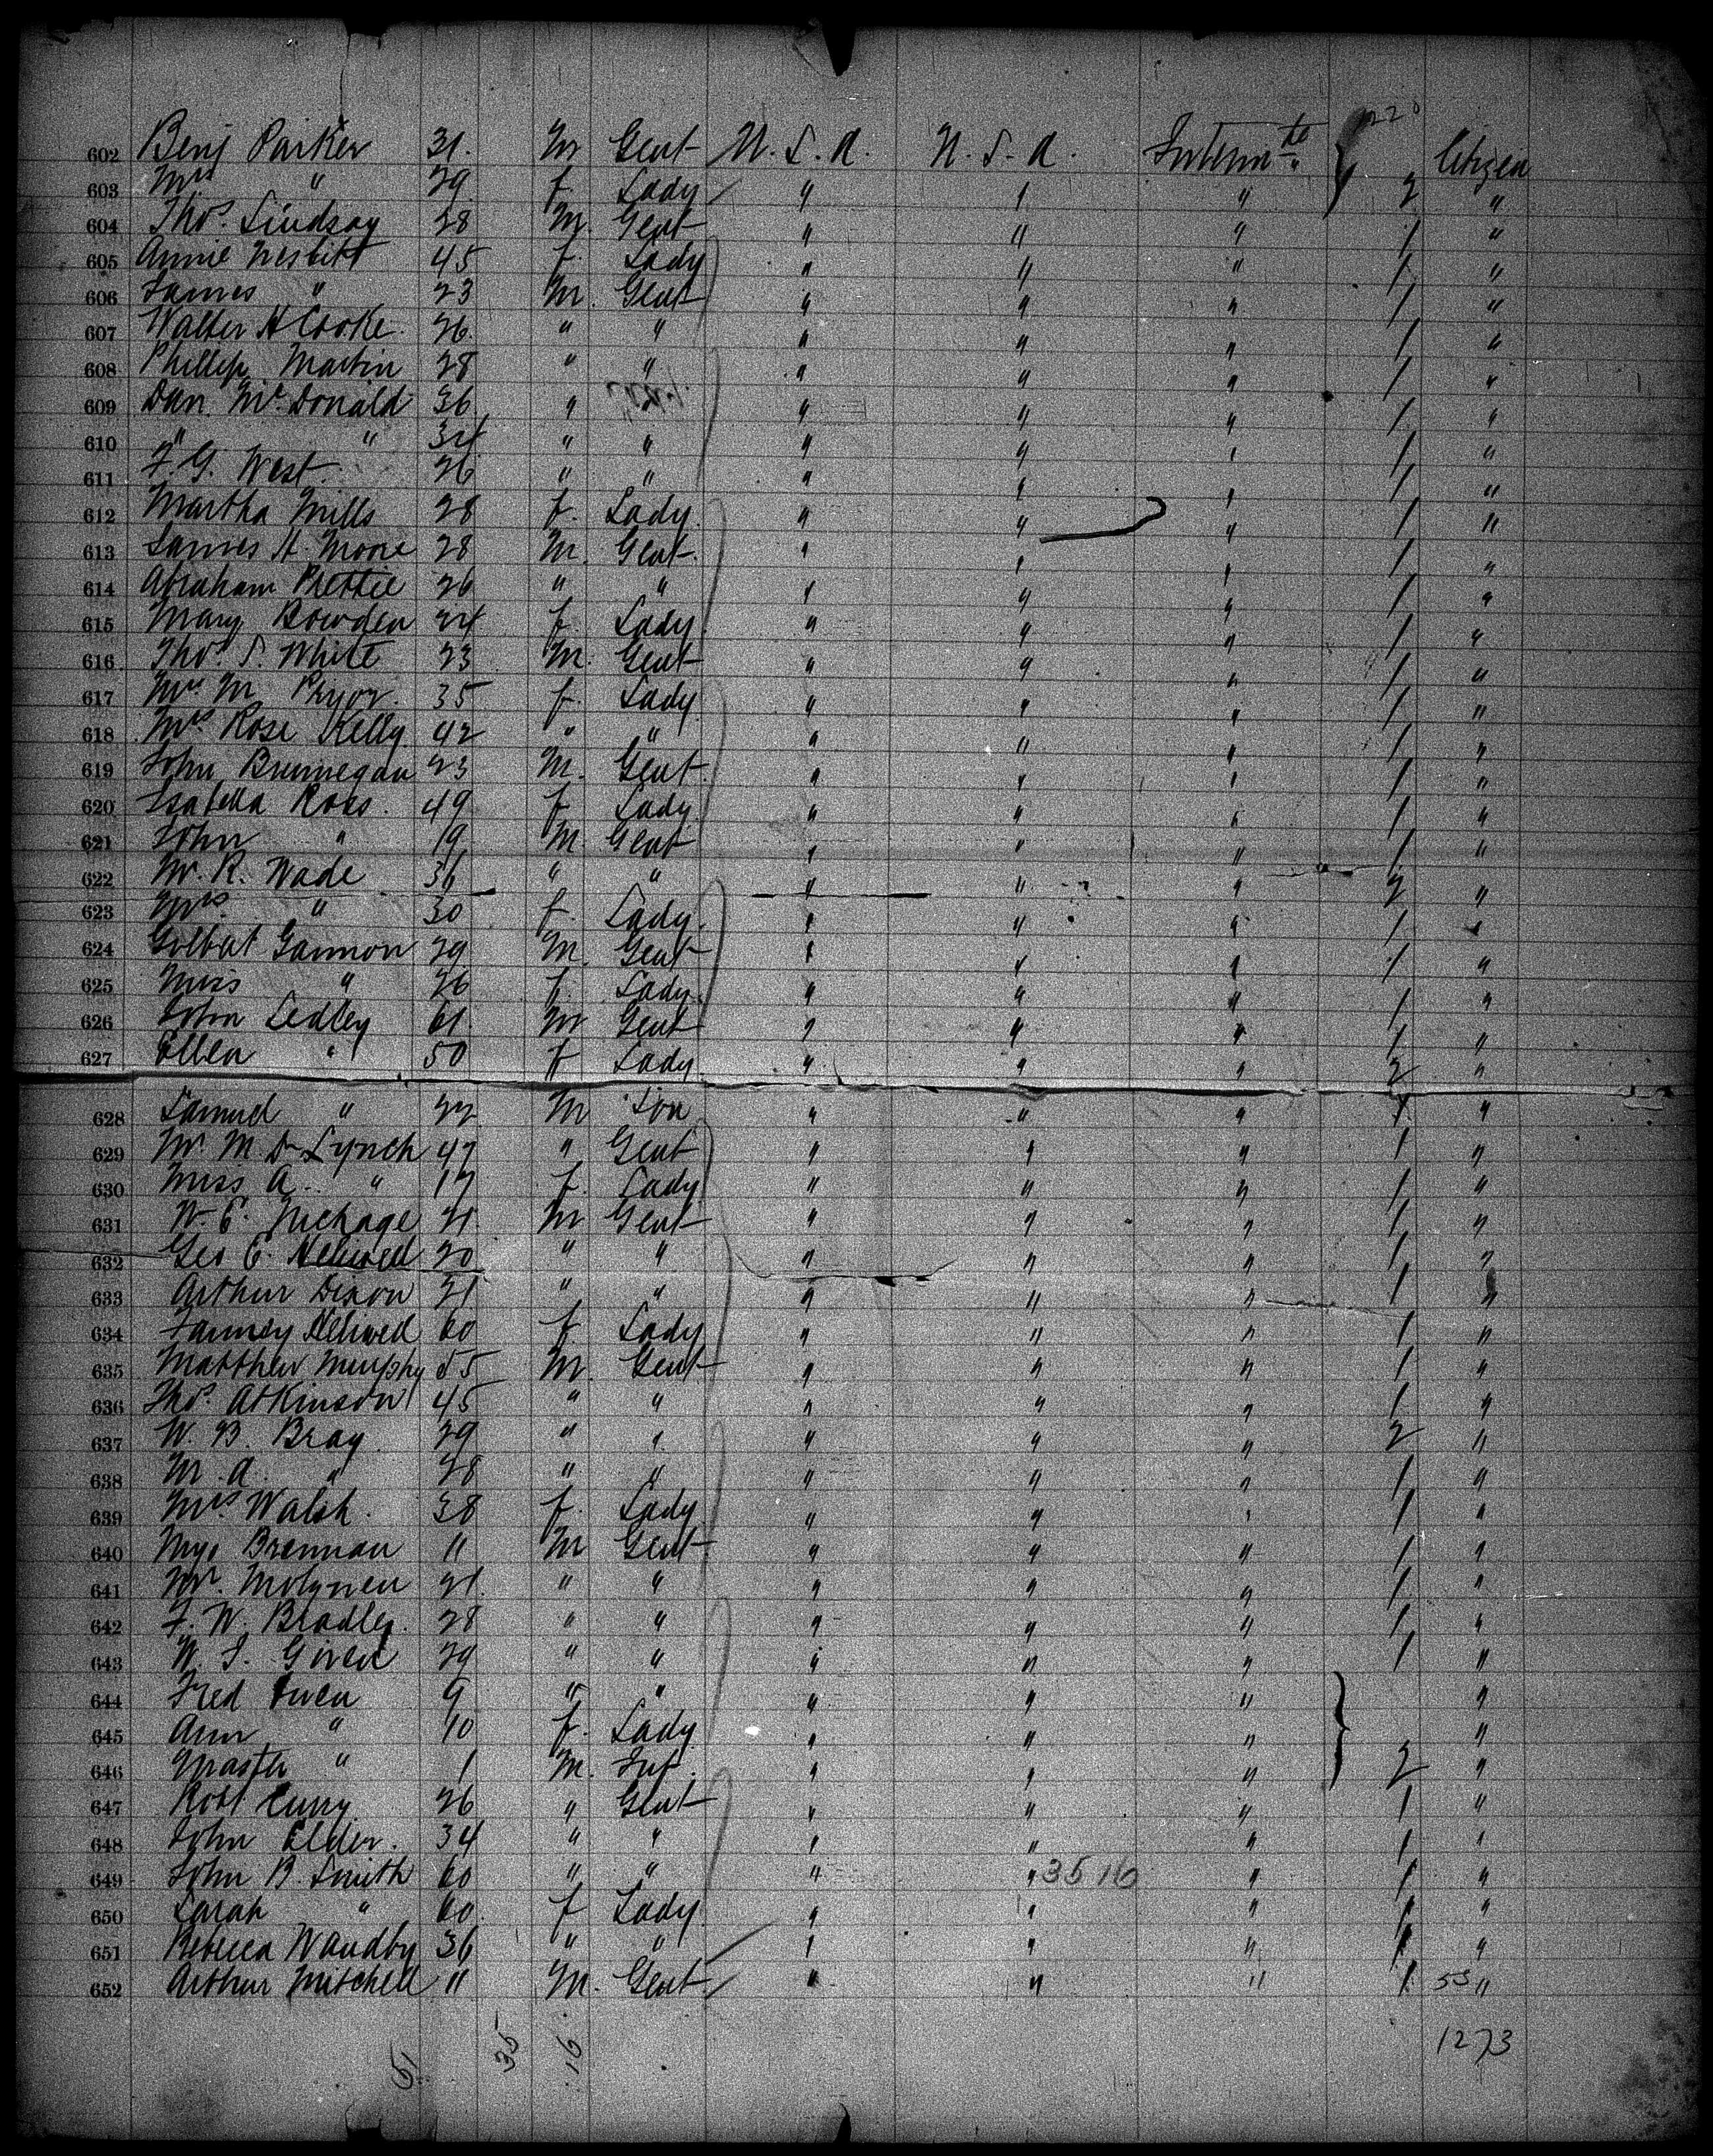 602 Benj Parker 31. M Gent U.S.A. U.S.A. Citizen
603 Mrs " 29 f Lady " " " 2 "
604 Thos. Lindsay 28 M. Gent " " " 1 "
605 Annie Nesbitt 45 f. Lady " " " 1 "
606 James " 23 M. Gent " " " 1 "
607 Walter H Cooke. 26. " " " " " 1 "
608 Phillip Martin 28 " " " " " 1 "
609 Dan. McDonald 36 " " " " 1 "
610 " " 34 " " " " " 1 "
611 F. G. West. 26 " " " " " 1 "
612 Martha Mills 28 f. Lady. " " " 1 "
613 James H. Moore 28 M. Gent. " " " 1 "
614 Abraham Prettie 26 " " " " " 1 "
615 Mary Bowden 24 f. Lady. " " " 1 "
616 Thos. S. White 23 M. Gent " " " 1 "
617 M Pryor. 35 f. Lady " " " 1 "
618 Mrs Rose Kelly 42 " " " " " 1 "
619 John 23 M. Gent. " " " 1 "
620 Isabella Ross. 49 f Lady " " " 1 "
621 John " 19 M Gent " " " 1 "
622 R. Wade 36 " " " " " 2 "
623 Mrs " 30 f. Lady. " " " 1 "
624 Gannon 29 M. Gent " " " 1 "
625 Miss " 26 f. Lady " " " 1 "
626 John Ledley 61. M Gent " " " 1 "
627 Ellen " 50 f Lady. " " " 2 "
628 Samuel " 22 M Son " " " 1 "
629 Lynch 47 " Gent " " " 1 "
630 Miss A. " 17 f. Lady " " " 1 "
631 W. C. 21. M Gent " " " 1 "
632 Geo C. 20 " " " " " 1 "
633 Arthur Dixon 21 " " " " " 1 "
634 Fanney 60 f. Lady " " " 1 "
635 Matthew Murphy 55 M. Gent " " " 1 "
636 Thos. Atkinson 45 " " " " " 1 "
637 W. B. Bray 29 " " " " " 2 "
638 M. A. " 28 " " " " " 1 "
639 Mrs Walsh. 38 f. Lady " " " 1 "
640 Brennan 11 M Gent " " " 1 "
641 21. " " " " " 1 "
642 F. W. Bradley. 28 " " " " " 1 "
643 W. J. Given 29 " " " " " 1 "
644 Fred Owen 9 " " " " " "
645 Ann " 10 f. Lady " " " "
646 Master " 1 M. Inf. " " " 2 "
647 Robt Curry 26 " Gent " " " 1 "
648 John Elder. 34 " " " " " 1 "
649 John B. Smith 60 " " " " 35 16 " 1 "
650 Sarah " 60. f Lady. " " " 1 "
651 Rebecca Wandby 36 " " " " " 1 "
652 Arthur Mitchell 11 M. Gent. " " " 1 "
51 35 16 1273